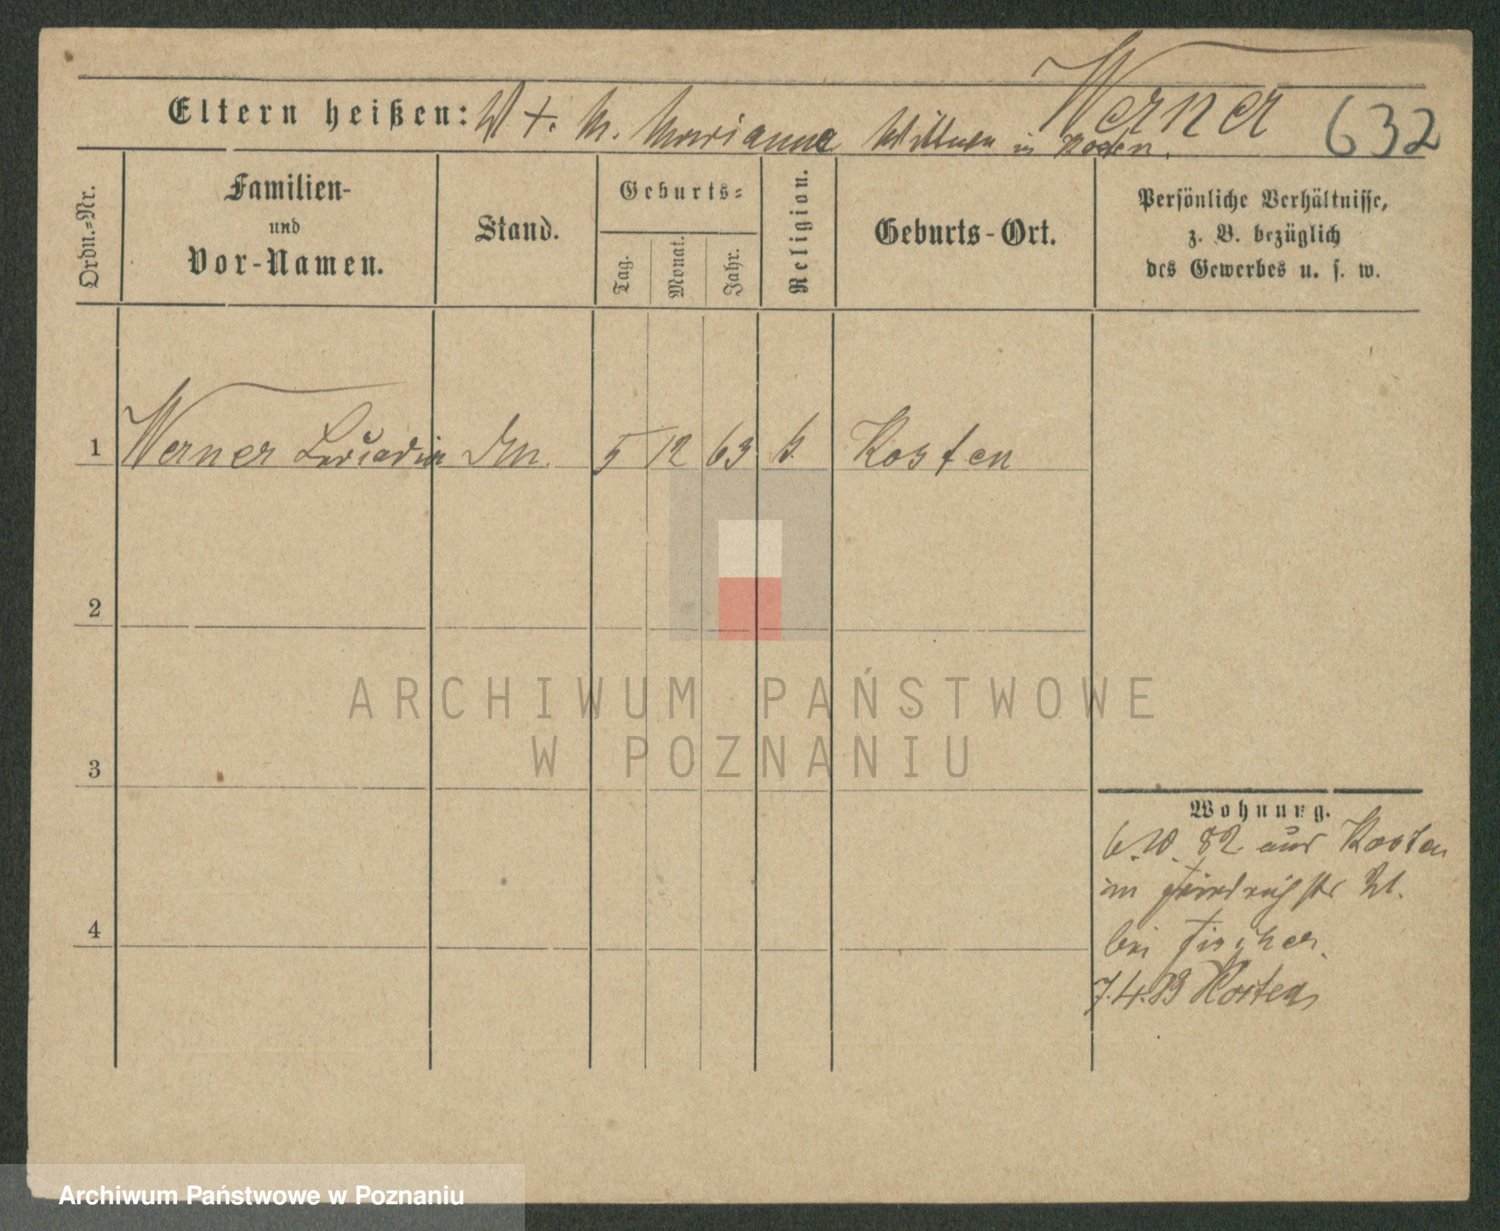 Werner
Eltern heißen: V †. M. Marianne in Kosten. 632
Ordn.-Nr.
Familien-
und
Vor-Namen.
Stand.
Geburts-
Tag.
Monat.
Jahr.
Religion.
Geburts-Ort.
Persönliche Verhältnisse,
z. B. bezüglich
des Gewerbes u. s. w.
1 Werner 5 12 63 k. Kosten
2
3
4
Wohnung.
6.10.82 aus Kosten
in Friedrichstr 21.
bei Fischer.
7.4.83 Kosten
ARCHIWUM PAŃSTWOWE
W POZNANIU
Archiwum Państwowe w Poznaniu